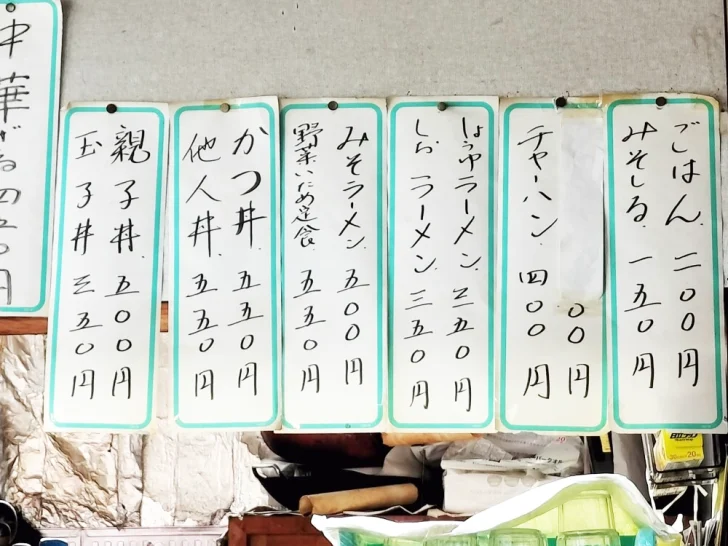 ごはん 二〇〇円
みそしる 一五〇円
〇〇円
チャーハン 四〇〇円
しょうゆラーメン 三五〇円
しおラーメン 三五〇円
みそラーメン 五〇〇円
野菜いため定食 五五〇円
かつ丼 五五〇円
他人丼 五五〇円
親子丼 五〇〇円
玉子丼 三五〇円
中華ざる 四五〇円